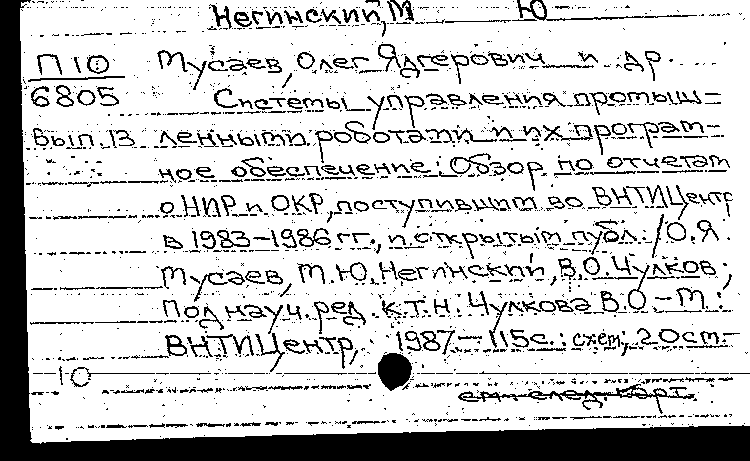 Негинский, М Ю
П 10 Мусаев, Олег Ядгерович и др.
6805 Системы управления промыш=
Вып. 13 ленными роботами и их програм-
ное обеспечение: Обзор по отчетам
о НИР и ОКР, поступившим во ВНТИЦентр
в 1983-1986 гг., и открытым публ. / О.Я.
Мусаев, М.Ю. Негинский, В.О. Чулков;
Под науч. ред. к.т.н. Чулкова В.О. - М.:
ВНТИЦентр, 1987. - 115 с.: схем; 20 см. -
10
см. след. карт.